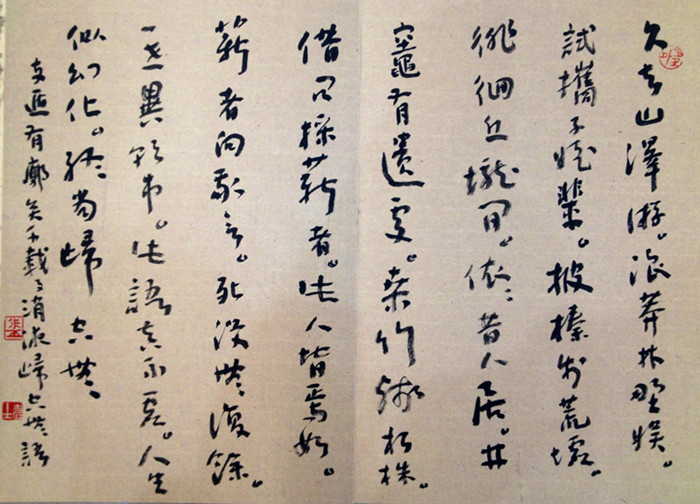 久去山澤游。浪莽林野娛。
試攜子姪輩。披榛步荒墟。
徘徊丘壠間。依々昔人居。井
竈有遺處。桑竹殘朽株。
借問採薪者。此人皆焉如。
薪者向我言。死沒無復餘。
一世異朝市。此語真不虛。人生
似幻化。終當歸空無。
支遁有廓矣千載事消液歸空無語